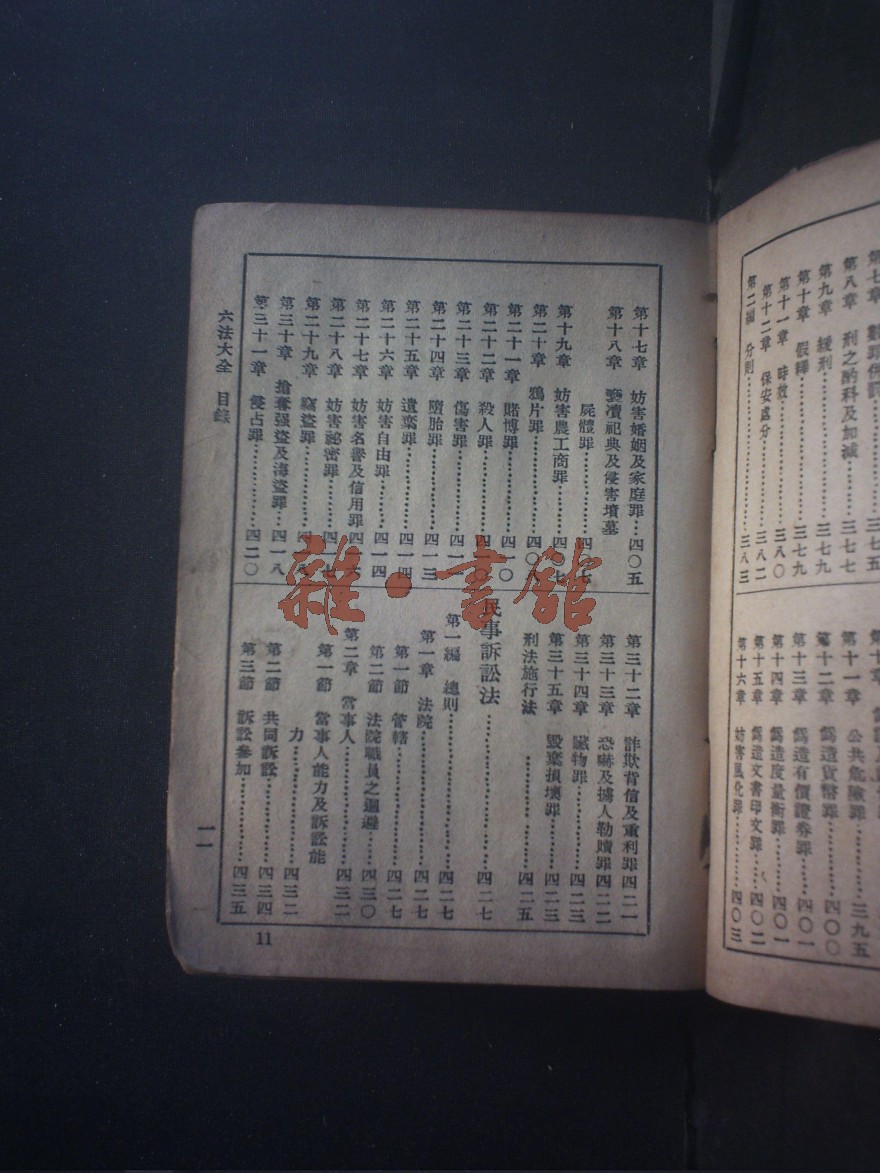 第八章 刑之酌科及加減……三七七
第九章 緩刑……三七九
第十章 假釋……三七九
第十一章 時效……三八〇
第十二章 保安處分……三八二
第二編 分則……三八三
第十一章 公共危險罪……三九五
第十二章 僞造貨幣罪……四〇〇
第十三章 僞造有價證券罪……四〇一
第十四章 僞造度量衡罪……四〇一
第十五章 僞造文書印文罪……四〇二
第十六章 妨害風化罪……四〇三
第十七章 妨害婚姻及家庭罪…四〇五
第十八章 褻瀆祀典及侵害墳墓
屍體罪……四〇七
第十九章 妨害農工商罪……四〇七
第二十章 鴉片罪……四〇八
第二十一章 賭博罪……四一〇
第二十二章 殺人罪……四一
第二十三章 傷害罪……四一
第二十四章 墮胎罪……四一三
第二十五章 遺棄罪……四一四
第二十六章 妨害自由罪……四一四
第二十七章 妨害名譽及信用罪四一六
第二十八章 妨害祕密罪……四一七
第二十九章 竊盜罪……四一八
第三十章 搶奪强盜及海盜罪…四一八
第三十一章 侵占罪……四二〇
第三十二章 詐欺背信及重利罪四二一
第三十三章 恐嚇及擄人勒贖罪四二二
第三十四章 贓物罪……四二三
第三十五章 毀棄損壞罪……四二三
刑法施行法……四二五
民事訴訟法……四二七
第一編 總則……四二七
第一章 法院……四二七
第一節 管轄……四二七
第二節 法院職員之迴避……四三〇
第二章 當事人……四三二
第一節 當事人能力及訴訟能
力……四三二
第二節 共同訴訟……四三四
第三節 訴訟參加……四三五
六法大全 目錄
一一
11
雜·書館